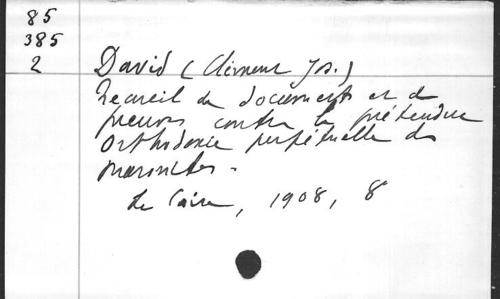 85
385
2
David (Clément Js.)
Recueil de documents et de
preuves contre la prétendue
Orthodoxie perpétuelle des
maronites.
Le Caire, 1908, 8°